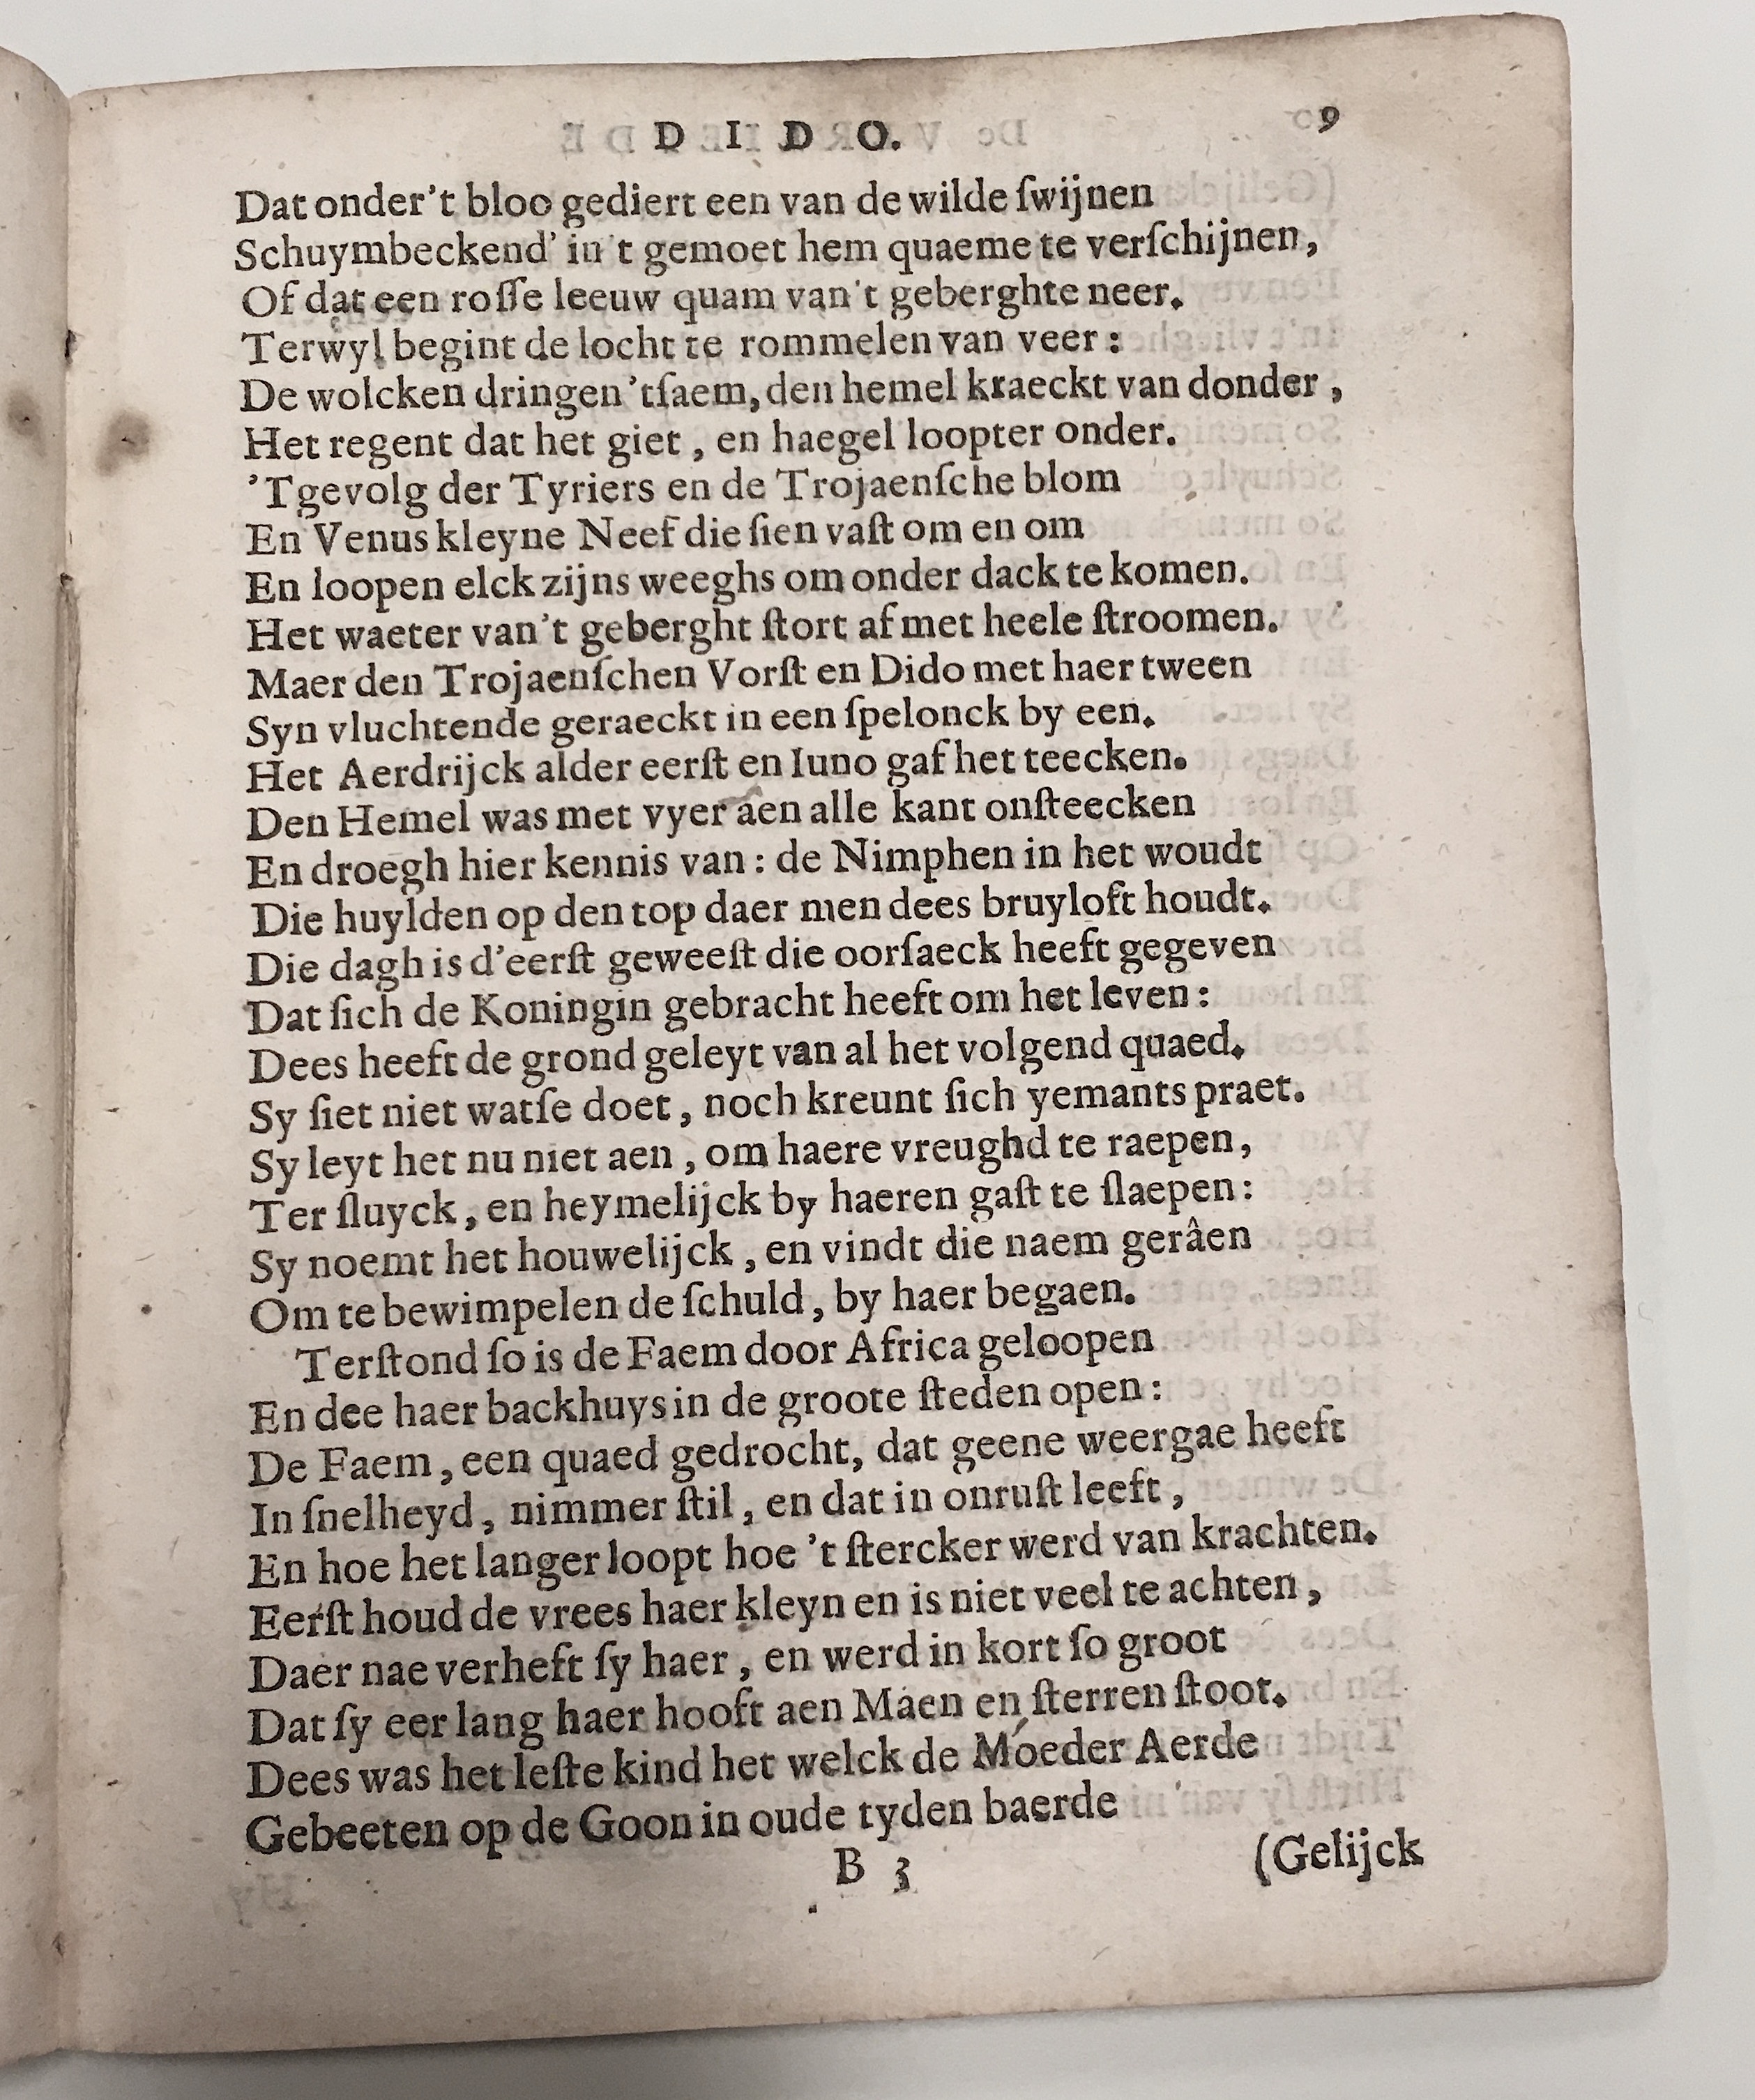 DIDO. 9
Dat onder 't bloo gediert een van de wilde ſwijnen
Schuymbeckend' in 't gemoet hem quaeme te verſchijnen,
Of dat een roſſe leeuw quam van 't geberghte neer.
Terwyl begint de locht te rommelen van veer:
De wolcken dringen 'tſaem, den hemel kraeckt van donder,
Het regent dat het giet, en haegel loopter onder.
'T gevolg der Tyriers en de Trojaenſche blom
En Venus kleyne Neef die ſien vaſt om en om
En loopen elck zijns weeghs om onder dack te komen.
Het waeter van 't geberght ſtort af met heele ſtroomen.
Maer den Trojaenſchen Vorſt en Dido met haer tween
Syn vluchtende geraeckt in een ſpelonck by een.
Het Aerdrijck alder eerſt en Iuno gaf het teecken.
Den Hemel was met vyer aen alle kant onſteecken
En droegh hier kennis van: de Nimphen in het woudt
Die huylden op den top daer men dees bruyloft houdt.
Die dagh is d'eerſt geweeſt die oorſaeck heeft gegeven
Dat ſich de Koningin gebracht heeft om het leven:
Dees heeft de grond geleyt van al het volgend quaed.
Sy ſiet niet watſe doet, noch kreunt ſich yemants praet.
Sy leyt het nu niet aen, om haere vreughd te raepen,
Ter ſluyck, en heymelijck by haeren gaſt te ſlaepen:
Sy noemt het houwelijck, en vindt die naem gerâen
Om te bewimpelen de ſchuld, by haer begaen.
Terſtond ſo is de Faem door Africa geloopen
En dee haer backhuys in de groote ſteden open:
De Faem, een quaed gedrocht, dat geene weergae heeft
In ſnelheyd, nimmer ſtil, en dat in onruſt leeft,
En hoe het langer loopt hoe 't ſtercker werd van krachten.
Eerſt houd de vrees haer kleyn en is niet veel te achten,
Daer nae verheft ſy haer, en werd in kort ſo groot
Dat ſy eer lang haer hooft aen Maen en ſterren ſtoot.
Dees was het leſte kind het welck de Moeder Aerde
Gebeeten op de Goon in oude tyden baerde
B 3 (Gelijck